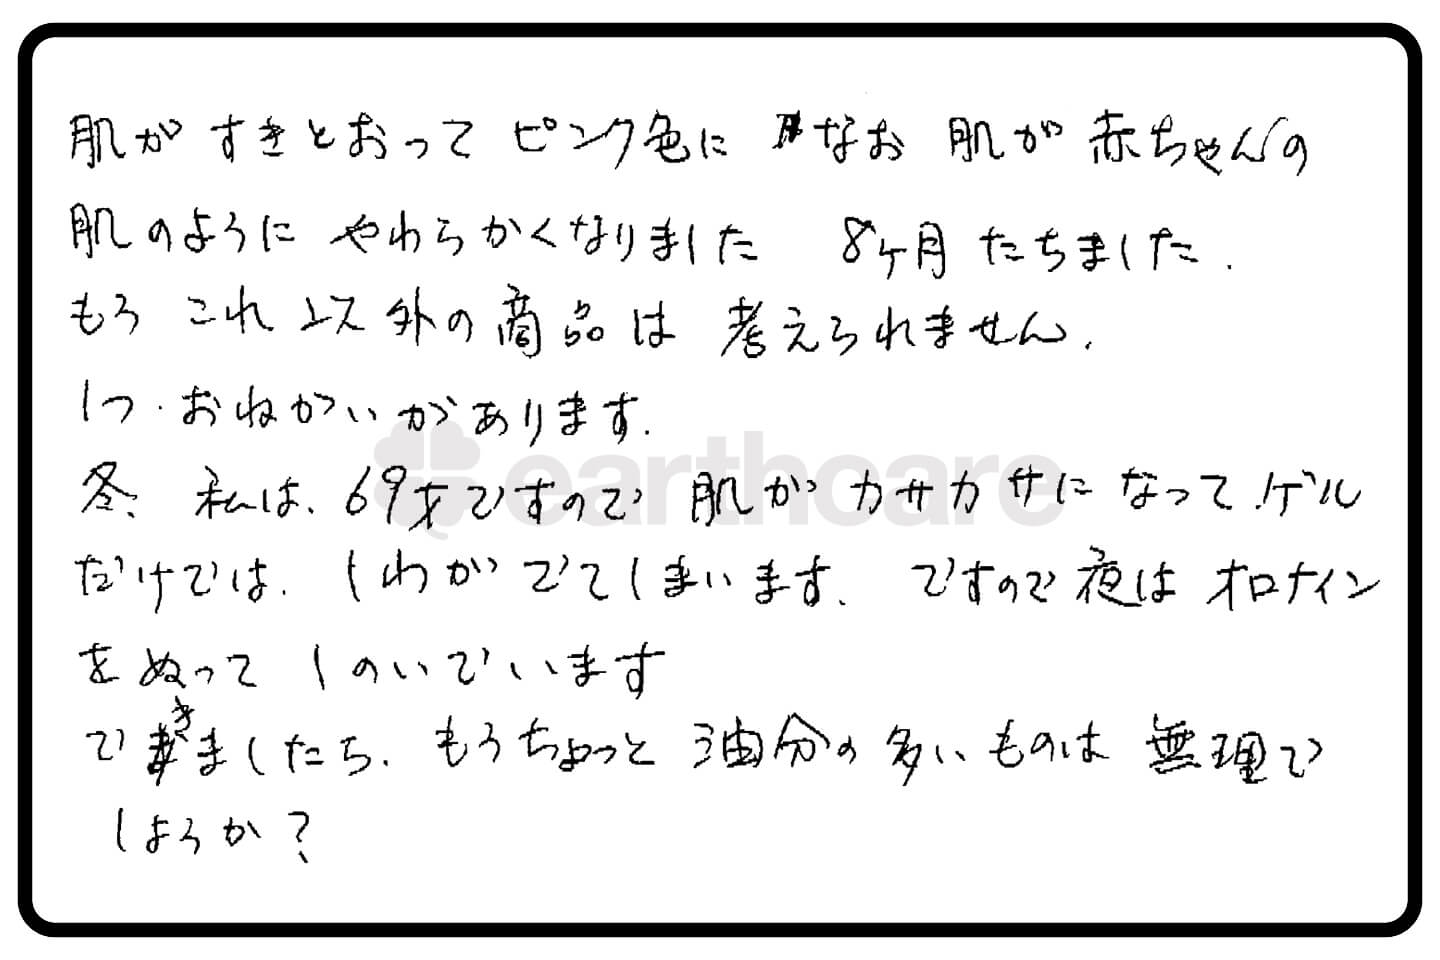 肌がすきとおってピンク色に なお 肌が赤ちゃんの
肌のように やわらかくなりました 8ヶ月 たちました.
もう これ以外の商品は 考えられません.
1つ.おねがいがあります.
earthcare
冬. 私は. 69才ですので 肌がカサカサになって.ゲル
だけでは. しわがでてしまいます. ですので夜はオロナイン
をぬって しのいでいます
できましたら. もうちょっと 油分の多いものは 無理で
しょうか?